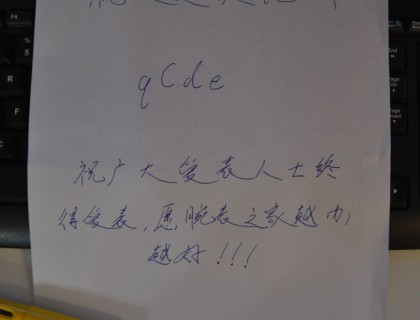 qCde
祝广大爱表人士终
得爱表,愿腕表之家越办
越好!!!